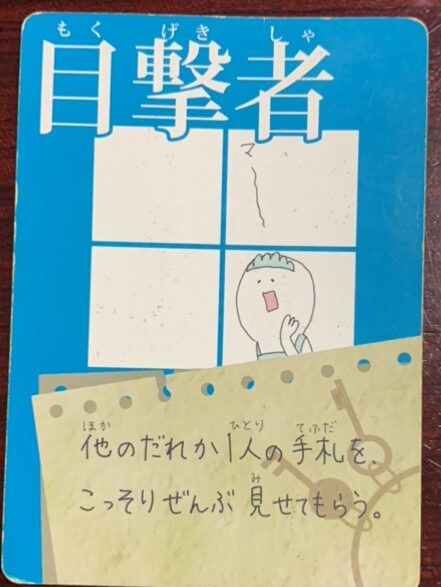 もくげきしゃ
目撃者
マ〜
ほか ひとり てふだ
他のだれか1人の手札を、
み
こっそりぜんぶ見せてもらう。